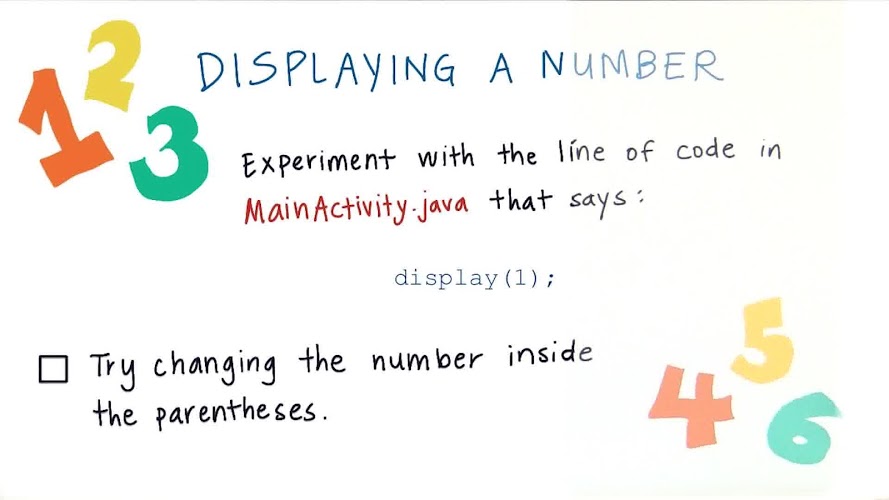 1 2 3
DISPLAYING A NUMBER
Experiment with the line of code in
MainActivity.java that says:
display(1);
Try changing the number inside
the parentheses.
4 5 6